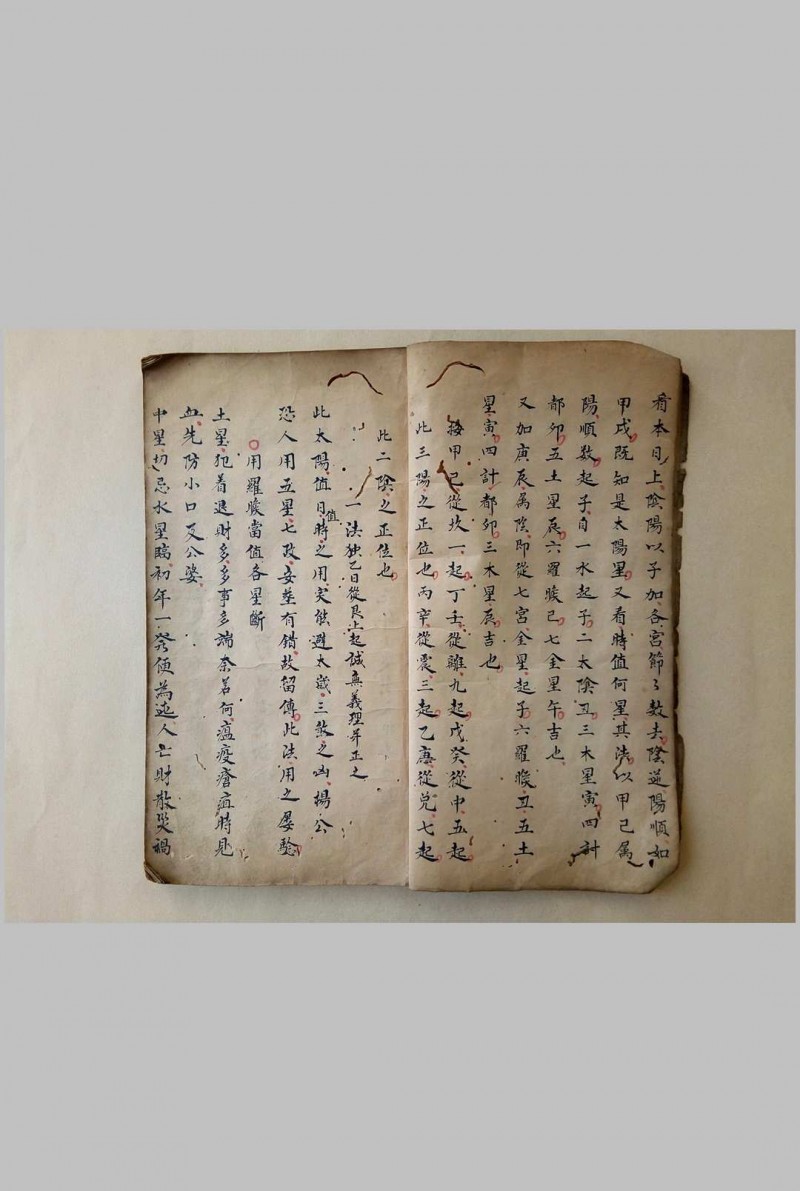 看本日上陰陽以子加各宮節〻数去陰逆陽順如
甲戌既知是太陽星又看時值何星其法以甲己属
陽順数起子自一水起子二太陰丑三木星寅四計
都卯五土星辰六羅睺巳七金星午吉也
又加庚辰属陰即從七宮金星起子六羅睺丑五土
星寅四計都卯三木星辰吉也
按甲己從坎一起丁壬從離九起戊癸從中五起
此三陽之正位也丙辛從震三起乙庚從兌七起
此二陰之正位也
一法独乙日從艮上起誠無義理并正之
此太陽值日值時之用実能避太歲三煞之凶揚公
恐人用五星七政安塟有錯故留傳此法用之屡驗
○用羅睺當值各星斷
土星犯着進財多多事多端奈若何瘟疫瘡疽時見
血先防小口及公婆
中星切忌水星臨初年一发便為迍人亡財散災禍